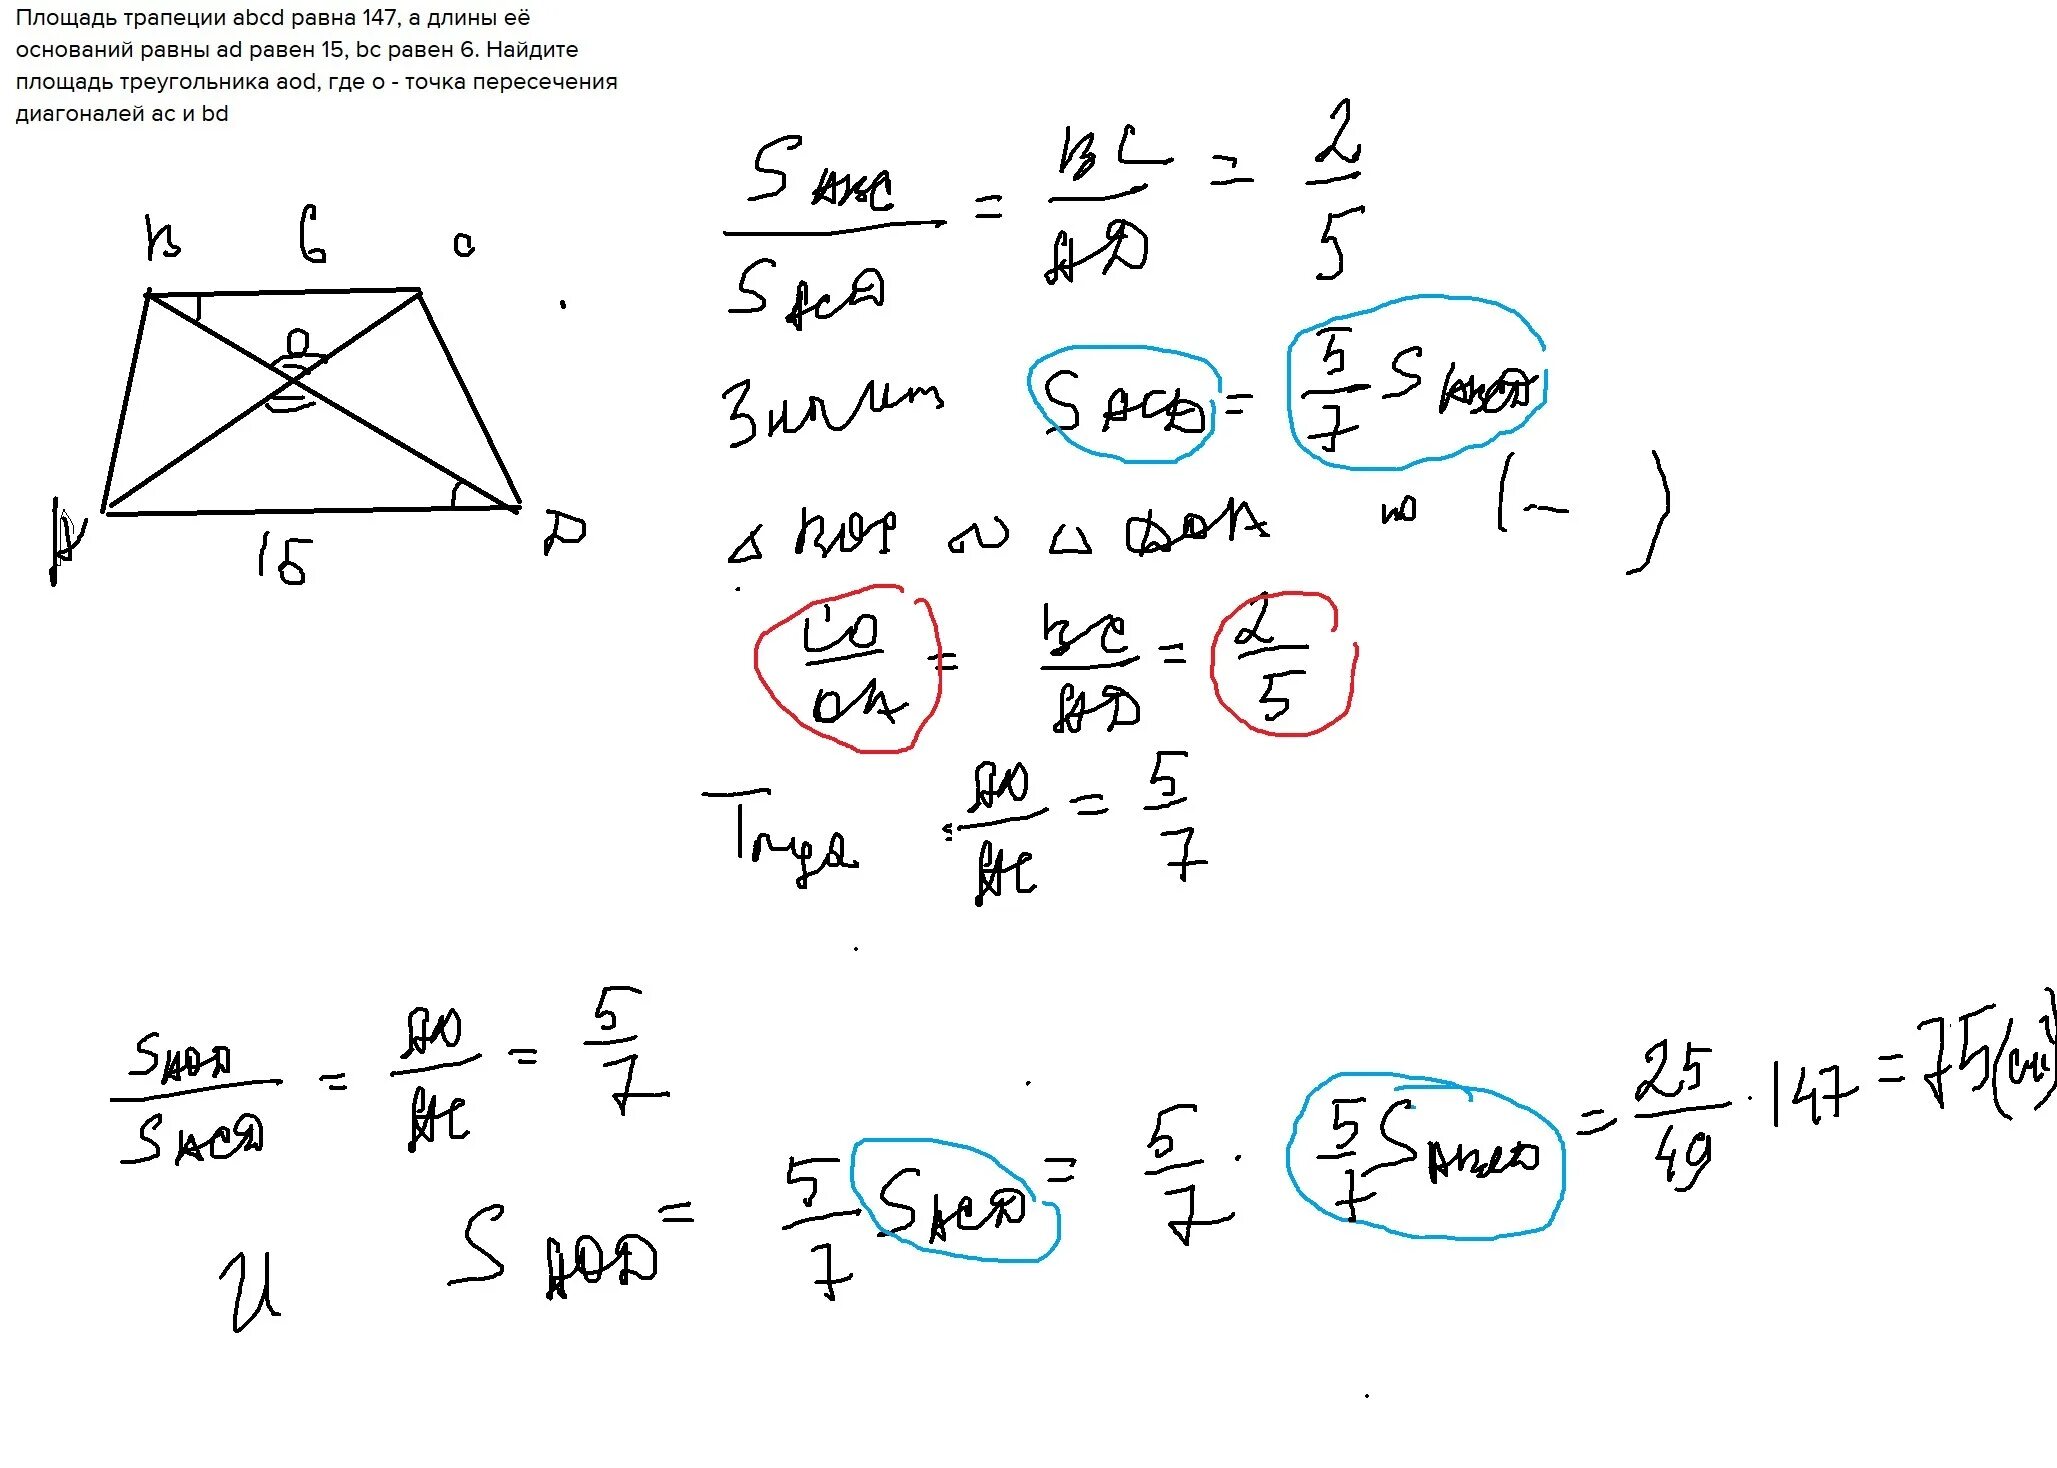 Площадь трапеции abcd равна 147, а длины её
оснований равны ad равен 15, bc равен 6. Найдите
площадь треугольника aod, где о - точка пересечения
диагоналей ac и bd
B 6 C
O
A 15 D
S ABC / S ACD = BC / AD = 2 / 5
Значит S ACD = 5/7 S ABCD
△ BOC ~ △ DOA по ( — )
CO / OA = BC / AD = 2 / 5
Тогда AO / AC = 5 / 7
S AOD / S ACD = AO / AC = 5 / 7
И S AOD = 5/7 S ACD = 5/7 · 5/7 S ABCD = 25/49 · 147 = 75 (см²)